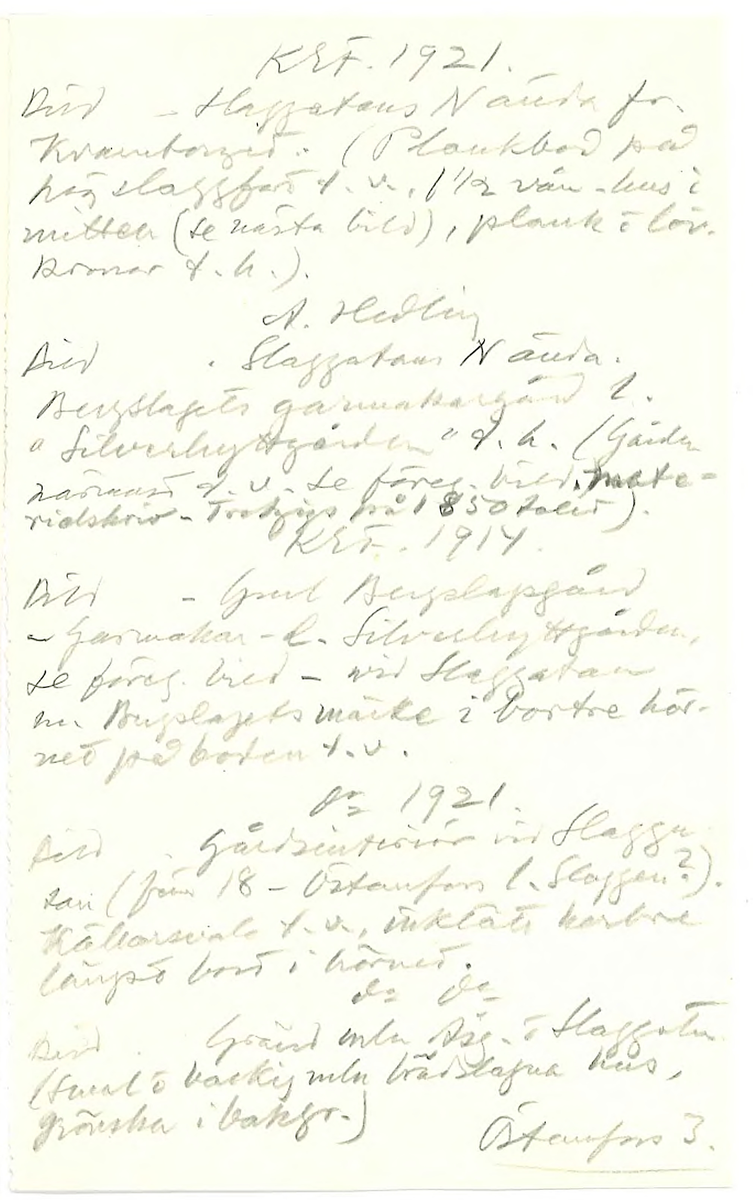 KEF. 1921.
Bild - Slaggatans N ända fr.
Kramtorget. (Plankbod på
hög slaggfot t.v., 1 1/2 vån-hus i
mitten (se nästa bild), plank o löv-
kronor t.h.).
A. Hedling
Bild . Slaggatans N ända.
Bergslagets garmakargård l.
"Silverhyttgården" t.h. (Gården
närmast t.v. se föreg. bild,
på 1850 talet).
KEF. 1914.
Bild - Gml Bergslagsgård
- Garmakar- l. Silverhyttgården,
se föreg. bild - vid Slaggatan
m. Bergslagets märke i bortre hör-
net på boden t.v.
do 1921.
Bild . Gårdsinteriör vid Slagga-
tan (från 18 - Östanfors l. Slaggen?).
Källarsvale t.v., inklätt
längst bort i hörnet.
do do
Bild . Gränd mln Åsg. o Slaggatn
(Smal o backig mln brädslagna hus,
grönska i bakgr.)
Östanfors 3.